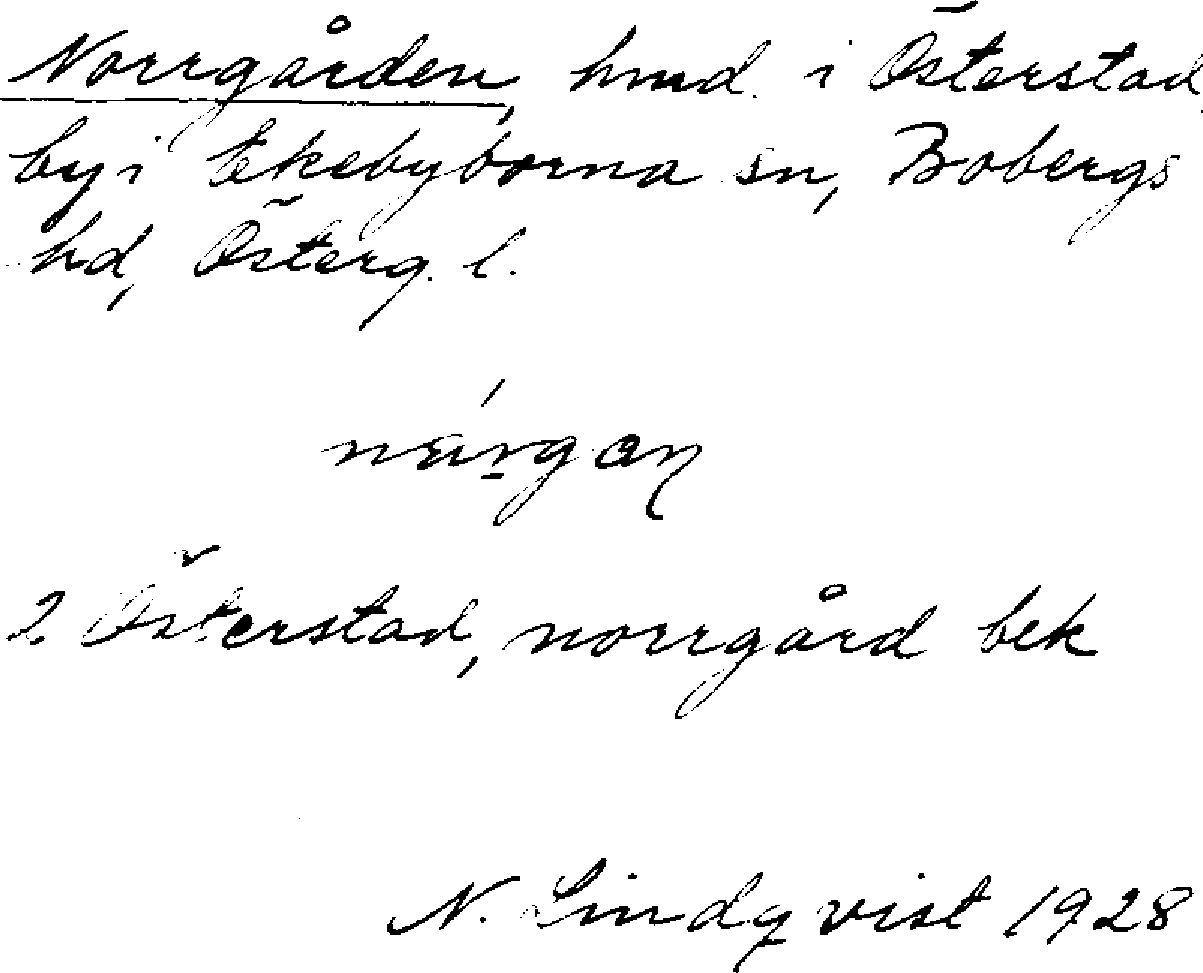 Norrgården, hmd. i Österstad
by i Ekebyborna sn, Bobergs
hd, Österg. l.
2. Österstad, norrgård bek
N. Lindqvist 1928